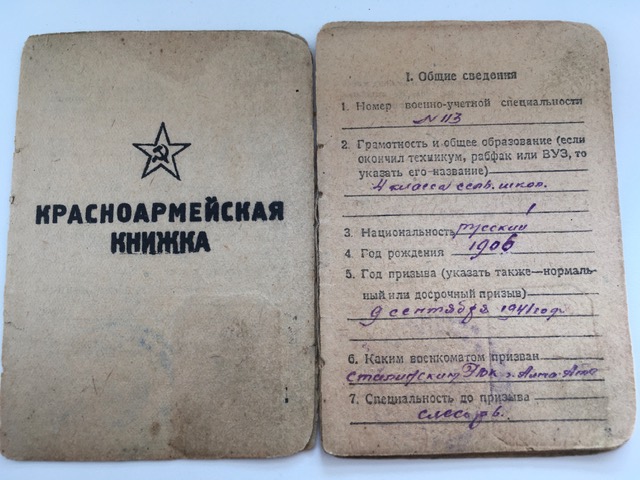 КРАСНОАРМЕЙСКАЯ
КНИЖКА
I. Общие сведения
1. Номер военно-учетной специальности
№ 113
2. Грамотность и общее образование (если
окончил техникум, рабфак или ВУЗ, то
указать его название)
4 класса сельв. школ.
3. Национальность русский
4. Год рождения 1906
5. Год призыва (указать также—нормаль-
ный или досрочный призыв)
9 сентября 1941 год
6. Каким военкоматом призван
РВК г. Алма-Ата
7. Специальность до призыва
слесарь.